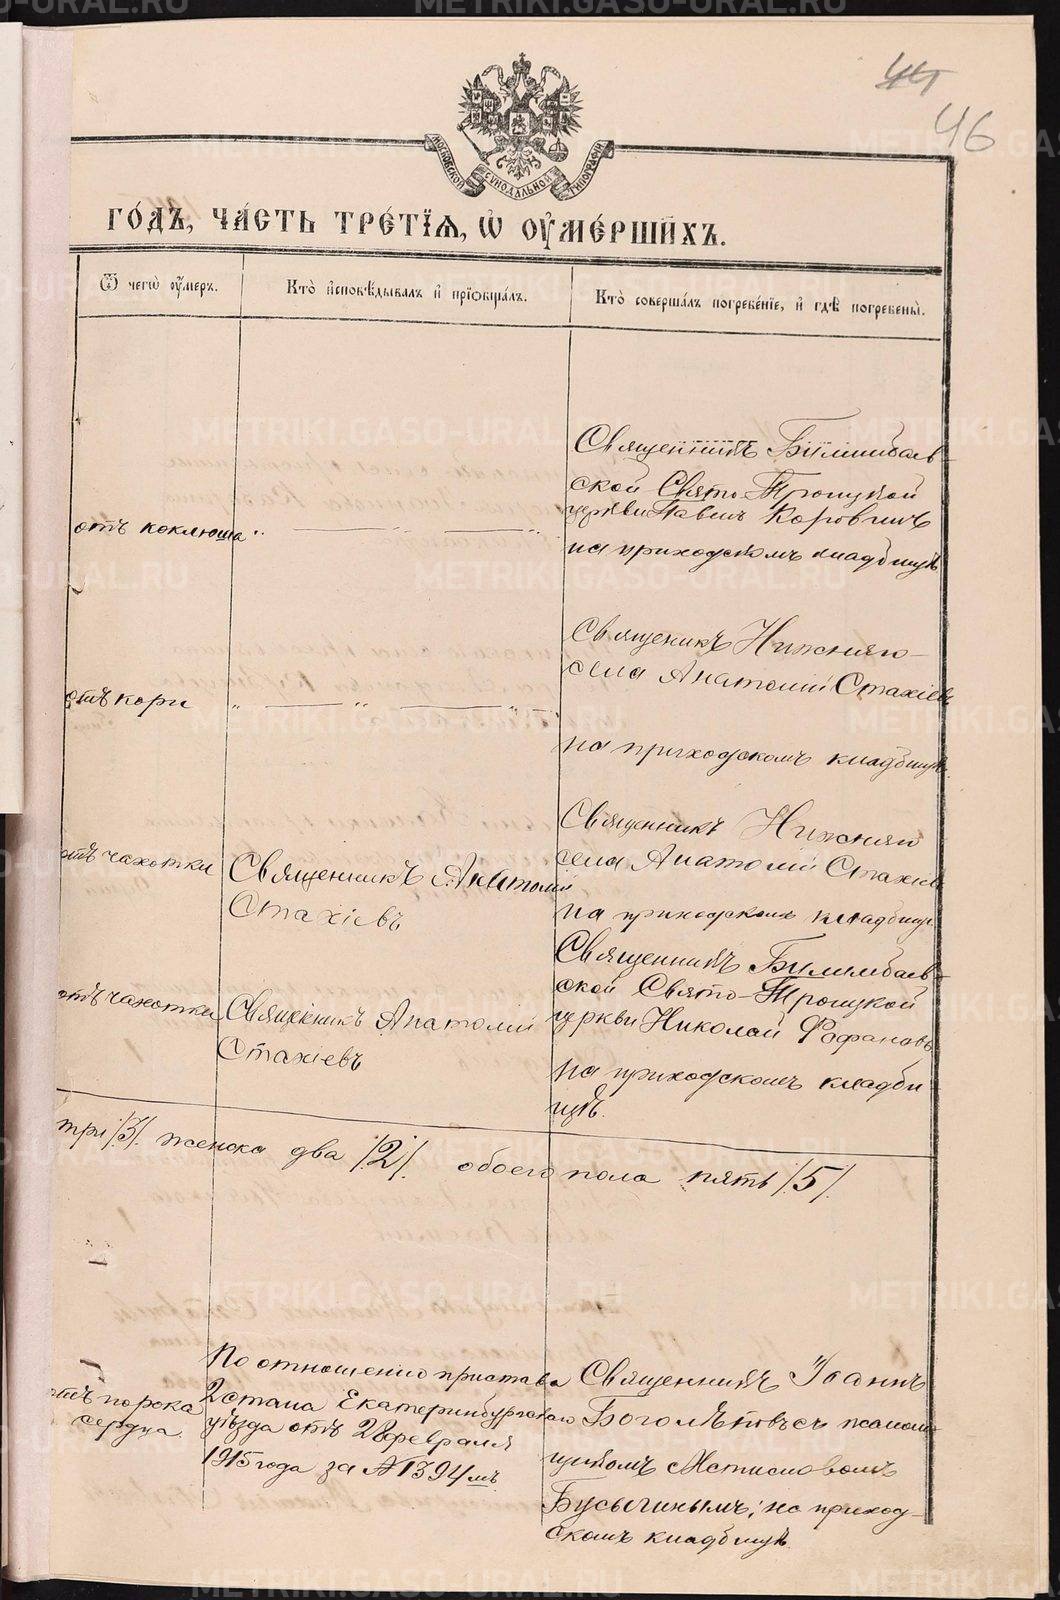 46
МОСКОВСКОЙ СѴНОДАЛЬНОЙ ТИПОГРАФІИ
ГО́ДЪ, ЧА́СТЬ ТРЕ́ТІѦ, Ѽ ОУ҆МЕ́РШИХЪ.
Ѿ чегѡ̀ оу҆́меръ.
Кто̀ и҆сповѣ́дывалъ и҆ прїѻбща́лъ.
Кто̀ соверша́лъ погребе́нїе, и҆ гдѣ̀ погребены̀.
отъ коклюша
Священникъ Билимбаев-
ской Свято-Троицкой
церкви Павелъ Коровинъ
на приходскомъ кладбищѣ
отъ кори
Священикъ Нижняго
села Анатолій Стахіевъ
на приходскомъ кладбищѣ
отъ чахотки
Священникъ Анатолій
Стахіевъ
Священникъ Нижняго
села Анатолій Стахіевъ
на приходскомъ кладбищѣ
отъ чахотки
Священникъ Анатолій
Стахіевъ
Священникъ Билимбаев-
ской Свято-Троицкой
церкви Николай Фофановъ
на приходскомъ кладби
щѣ.
три /3/. женска два /2/. обоего пола пять /5/.
отъ порока
сердца
По отношенію пристава
2 стана Екатеринбургскаго
уѣзда отъ 28 февраля
1915 года за № 1394 мъ
Священникъ Іоаннъ
Боголѣповъ съ псалом-
щикомъ Мстиславомъ
Бусыгинымъ; на приход-
скомъ кладбищѣ.
METRIKI.GASO-URAL.RU